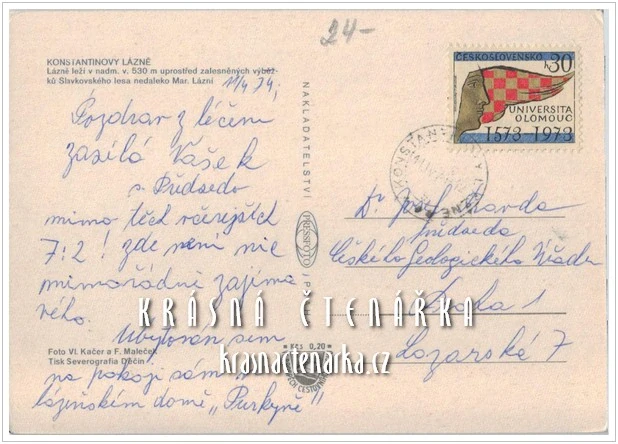 24-
KONSTANTINOVY LÁZNĚ
Lázně leží v nadm. v. 530 m uprostřed zalesněných výběž-
ků Slavkovského lesa nedaleko Mar. Lázní
11/4 74,
Pozdrav z léčení
zasílá Vašek
s. Předsedo
mimo těch včerejších
7:2! zde není nic
mimořádně zajíma
vého.
Ubytován jsem
na pokoji sám v
lázeňském domě „Purkyně"
Foto Vl. Kačer a F. Maleček
Tisk Severografia Děčín
NAKLADATELSTVÍ
PRESSFOTO
Kčs 0,20
ČESKOSLOVENSKO
30
UNIVERSITA
OLOMOUC
1573-1973
KONSTANTINOVY LÁZNĚ
Dr.
předseda
Českého Geologického Úřadu
Praha 1
Lazarská 7
KRÁSNÁ ČTENÁŘKA
krasnactenarka.cz